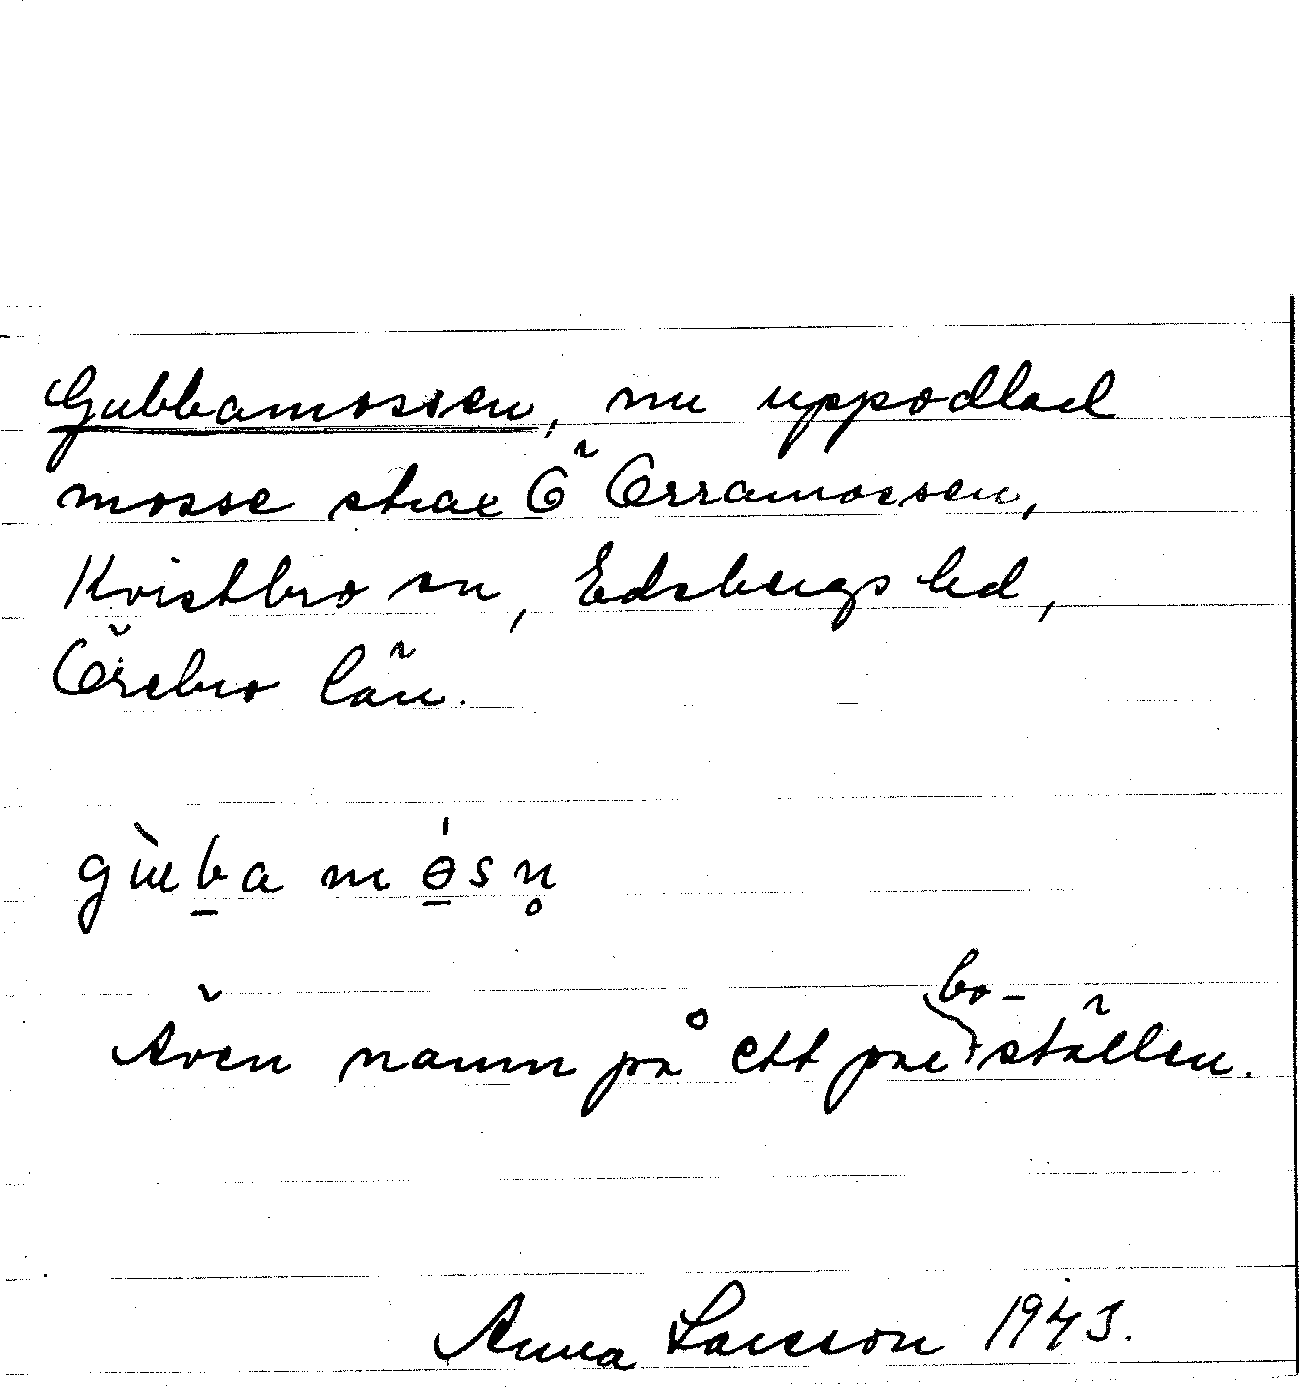 Gubbamossen, nu uppodlad
mosse strax Ö Orramossen,
Kvistbro sn, Edsbergs hd,
Örebro län.
gùba mósn̥
Även namn på ett par bo-ställen.
Anna Larsson 1943.